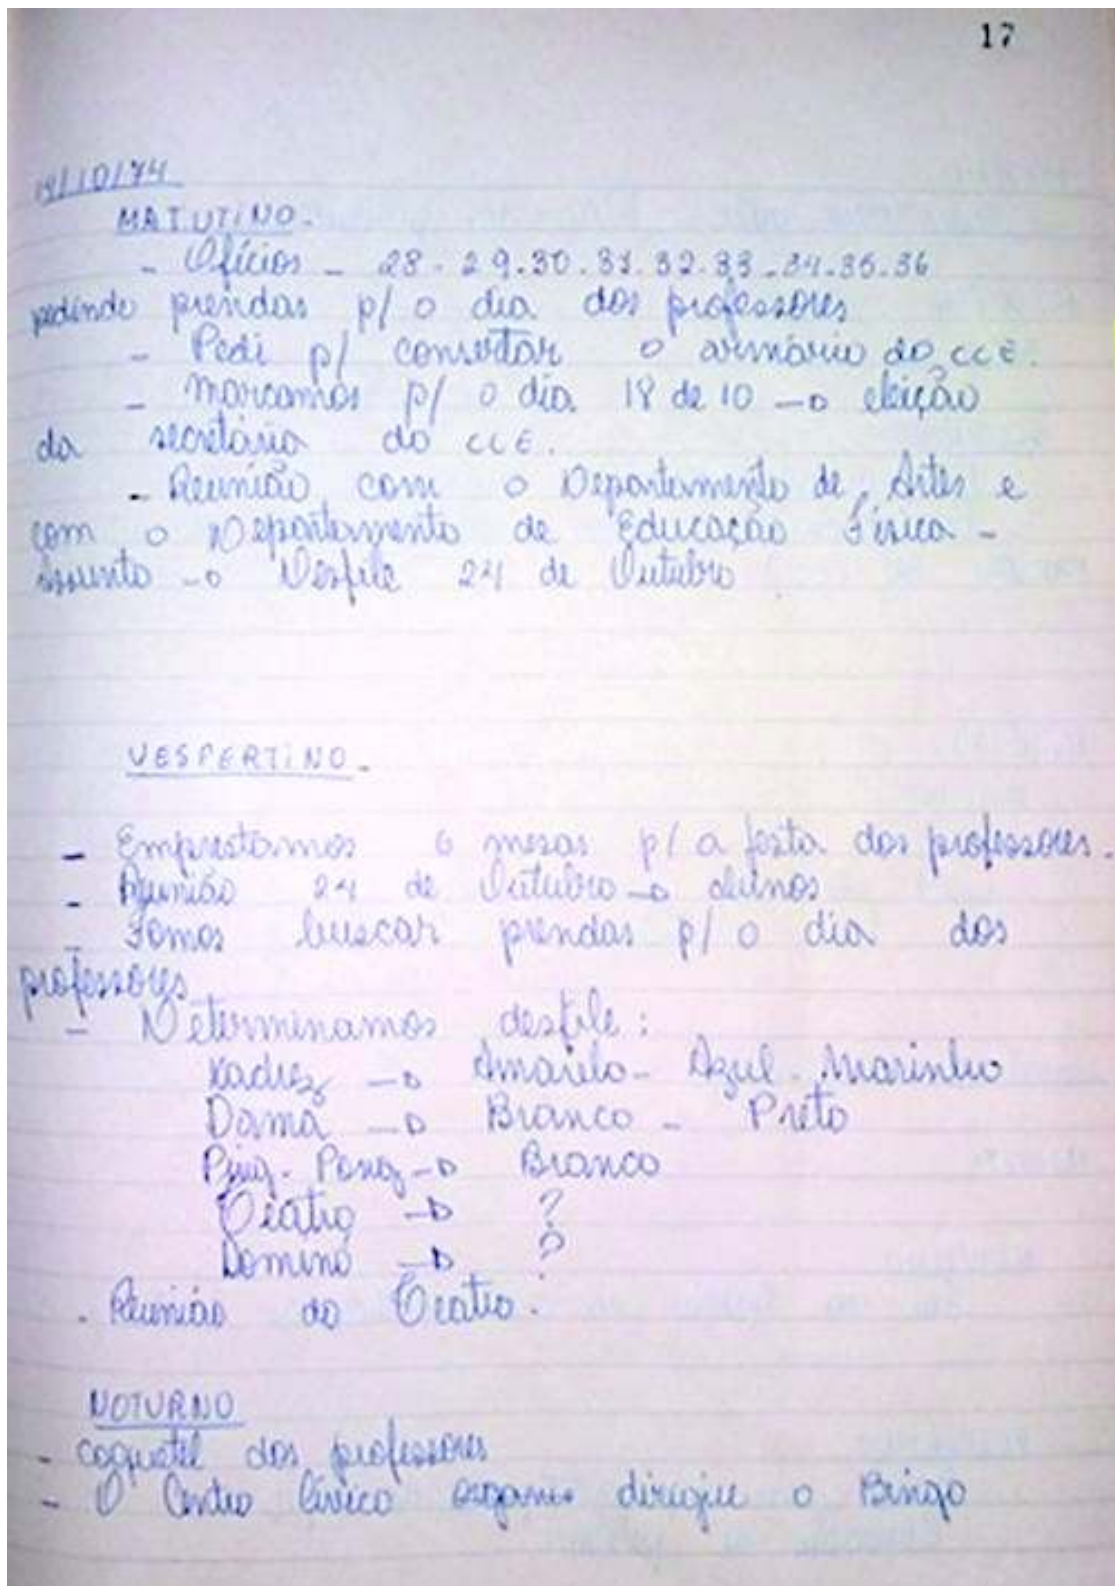 17
14/10/74
MATUTINO.
- Ofícios - 28-29.30.31.32.33-34.35.36
pedindo prendas p/ o dia dos professores
- Pedi p/ consertar o armário do CCE.
- Marcamos p/ o dia 18 de 10 → eleição
da secretária do CCE.
- Reunião com o Departamento de Artes e
com o Departamento de Educação Física -
assunto → Desfile 24 de Outubro
VESPERTINO.
- Emprestamos 6 mesas p/ a festa dos professores.
- Reunião 24 de Outubro → alunos
- Fomos buscar prendas p/ o dia dos
professores
- Determinamos desfile:
Xadrez → Amarelo - Azul-Marinho
Dama → Branco - Preto
Ping-Pong → Branco
Teatro → ?
Dominó → ?
. Reunião do Teatro.
NOTURNO
- coquetel dos professores
- O Centro Cívico dirigiu o Bingo